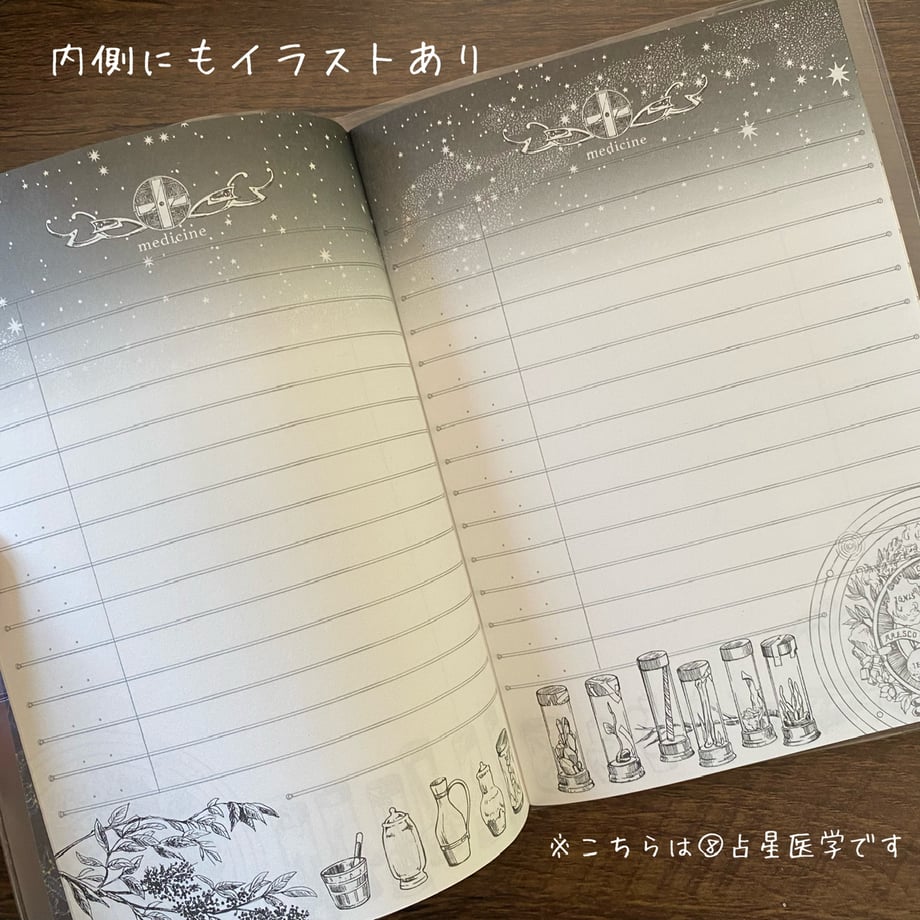 内側にもイラストあり
medicine
medicine
※こちらは⑧占星医学です